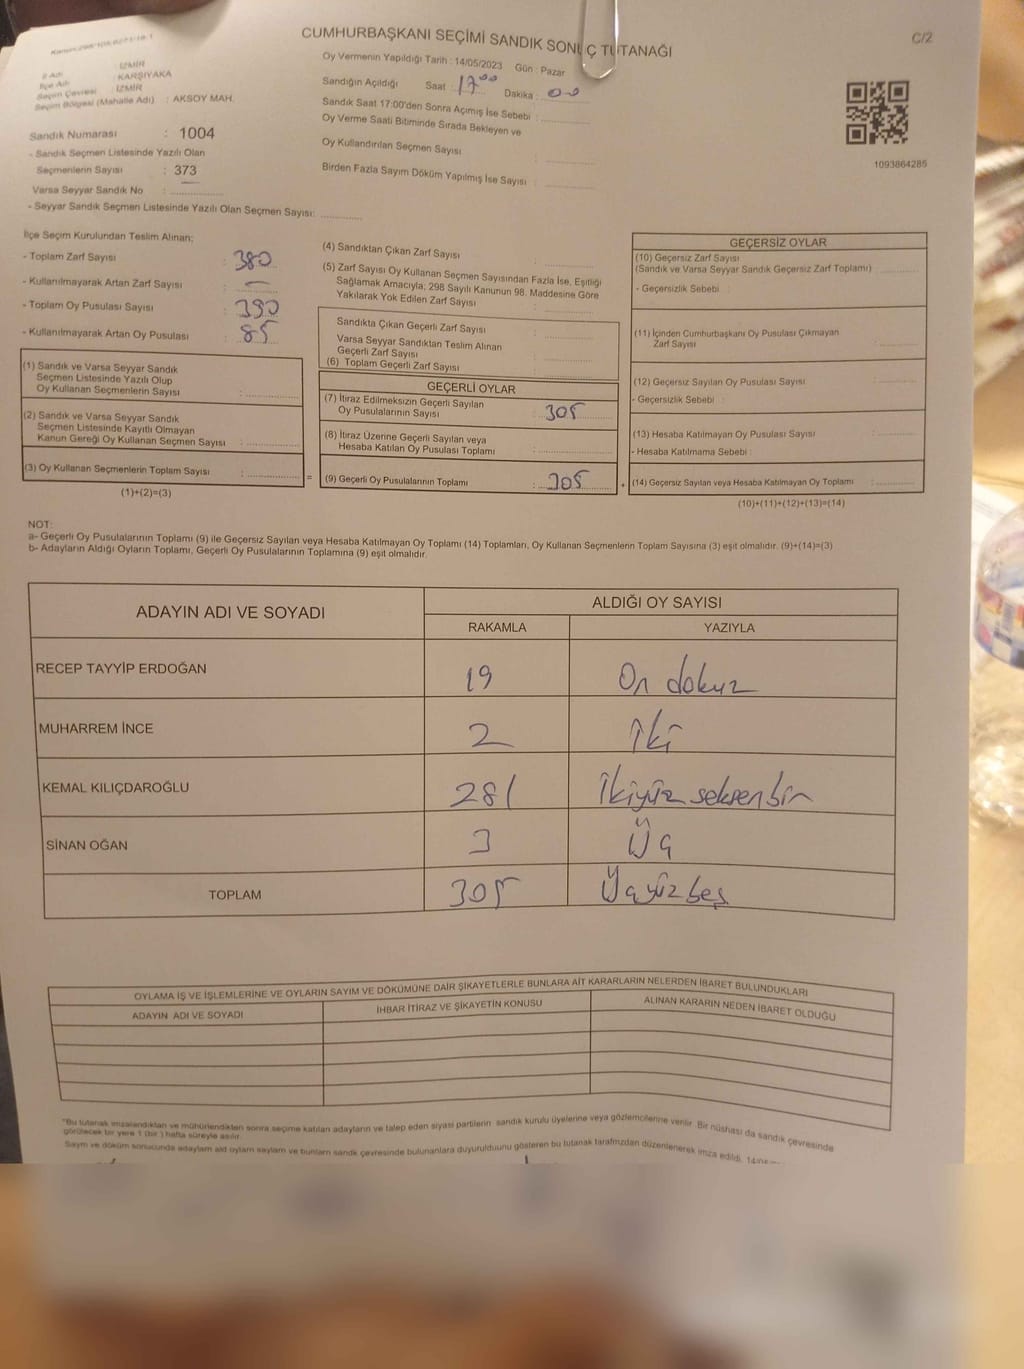 CUMHURBAŞKANI SEÇİMİ SANDIK SONUÇ TUTANAĞI
C/2
İl Adı : İZMİR
İlçe Adı : KARŞIYAKA
Seçim Çevresi : İZMİR
Seçim Bölgesi (Mahalle Adı) : AKSOY MAH.
Sandık Numarası : 1004
- Sandık Seçmen Listesinde Yazılı Olan
Seçmenlerin Sayısı : 373
Varsa Seyyar Sandık No :
- Seyyar Sandık Seçmen Listesinde Yazılı Olan Seçmen Sayısı:
Oy Vermenin Yapıldığı Tarih : 14/05/2023 Gün : Pazar
Sandığın Açıldığı Saat : 17 00 Dakika : 00
Sandık Saat 17:00'den Sonra Açımış İse Sebebi :
Oy Verme Saati Bitiminde Sırada Bekleyen ve
Oy Kullandırılan Seçmen Sayısı :
Birden Fazla Sayım Döküm Yapılmış İse Sayısı :
1093864285
İlçe Seçim Kurulundan Teslim Alınan;
- Toplam Zarf Sayısı : 380
- Kullanılmayarak Artan Zarf Sayısı : —
- Toplam Oy Pusulası Sayısı : 390
- Kullanılmayarak Artan Oy Pusulası : 85
(1) Sandık ve Varsa Seyyar Sandık
Seçmen Listesinde Yazılı Olup
Oy Kullanan Seçmenlerin Sayısı :
(2) Sandık ve Varsa Seyyar Sandık
Seçmen Listesinde Kayıtlı Olmayan
Kanun Gereği Oy Kullanan Seçmen Sayısı :
(3) Oy Kullanan Seçmenlerin Toplam Sayısı : =
(1)+(2)=(3)
(4) Sandıktan Çıkan Zarf Sayısı :
(5) Zarf Sayısı Oy Kullanan Seçmen Sayısından Fazla İse, Eşitliği
Sağlamak Amacıyla; 298 Sayılı Kanunun 98. Maddesine Göre
Yakılarak Yok Edilen Zarf Sayısı :
Sandıkta Çıkan Geçerli Zarf Sayısı :
Varsa Seyyar Sandıktan Teslim Alınan
Geçerli Zarf Sayısı :
(6) Toplam Geçerli Zarf Sayısı :
GEÇERLİ OYLAR
(7) İtiraz Edilmeksizin Geçerli Sayılan
Oy Pusulalarının Sayısı : 305
(8) İtiraz Üzerine Geçerli Sayılan veya
Hesaba Katılan Oy Pusulası Toplamı :
(9) Geçerli Oy Pusulalarının Toplamı : 305 +
GEÇERSİZ OYLAR
(10) Geçersiz Zarf Sayısı
(Sandık ve Varsa Seyyar Sandık Geçersiz Zarf Toplamı) :
- Geçersizlik Sebebi :
(11) İçinden Cumhurbaşkanı Oy Pusulası Çıkmayan
Zarf Sayısı :
(12) Geçersiz Sayılan Oy Pusulası Sayısı :
- Geçersizlik Sebebi :
(13) Hesaba Katılmayan Oy Pusulası Sayısı :
- Hesaba Katılmama Sebebi :
(14) Geçersiz Sayılan veya Hesaba Katılmayan Oy Toplamı :
(10)+(11)+(12)+(13)=(14)
NOT:
a- Geçerli Oy Pusulalarının Toplamı (9) ile Geçersiz Sayılan veya Hesaba Katılmayan Oy Toplamı (14) Toplamları, Oy Kullanan Seçmenlerin Toplam Sayısına (3) eşit olmalıdır. (9)+(14)=(3)
b- Adayların Aldığı Oyların Toplamı, Geçerli Oy Pusulalarının Toplamına (9) eşit olmalıdır.
ADAYIN ADI VE SOYADI ALDIĞI OY SAYISI
RAKAMLA YAZIYLA
RECEP TAYYİP ERDOĞAN 19 On dokuz
MUHARREM İNCE 2 İki
KEMAL KILIÇDAROĞLU 281 İkiyüz seksen bir
SİNAN OĞAN 3 Üç
TOPLAM 305 Üçyüz beş
OYLAMA İŞ VE İŞLEMLERİNE VE OYLARIN SAYIM VE DÖKÜMÜNE DAİR ŞİKAYETLERLE BUNLARA AİT KARARLARIN NELERDEN İBARET BULUNDUKLARI
ADAYIN ADI VE SOYADI İHBAR İTİRAZ VE ŞİKAYETİN KONUSU ALINAN KARARIN NEDEN İBARET OLDUĞU
*Bu tutanak imzalandıktan ve mühürlendikten sonra seçime katılan adayların ve talep eden siyasi partilerin sandık kurulu üyelerine veya gözlemcilerine verilir. Bir nüshası da sandık çevresinde
görülecek bir yere 1 (bir) hafta süreyle asılır.
Sayım ve döküm sonucunda adayların ald oyların sayılarn ve bunların sandık çevresinde bulunanlara duyurulduunu gösteren bu tutanak tarafmzdan düzenlenerek imza edildi.